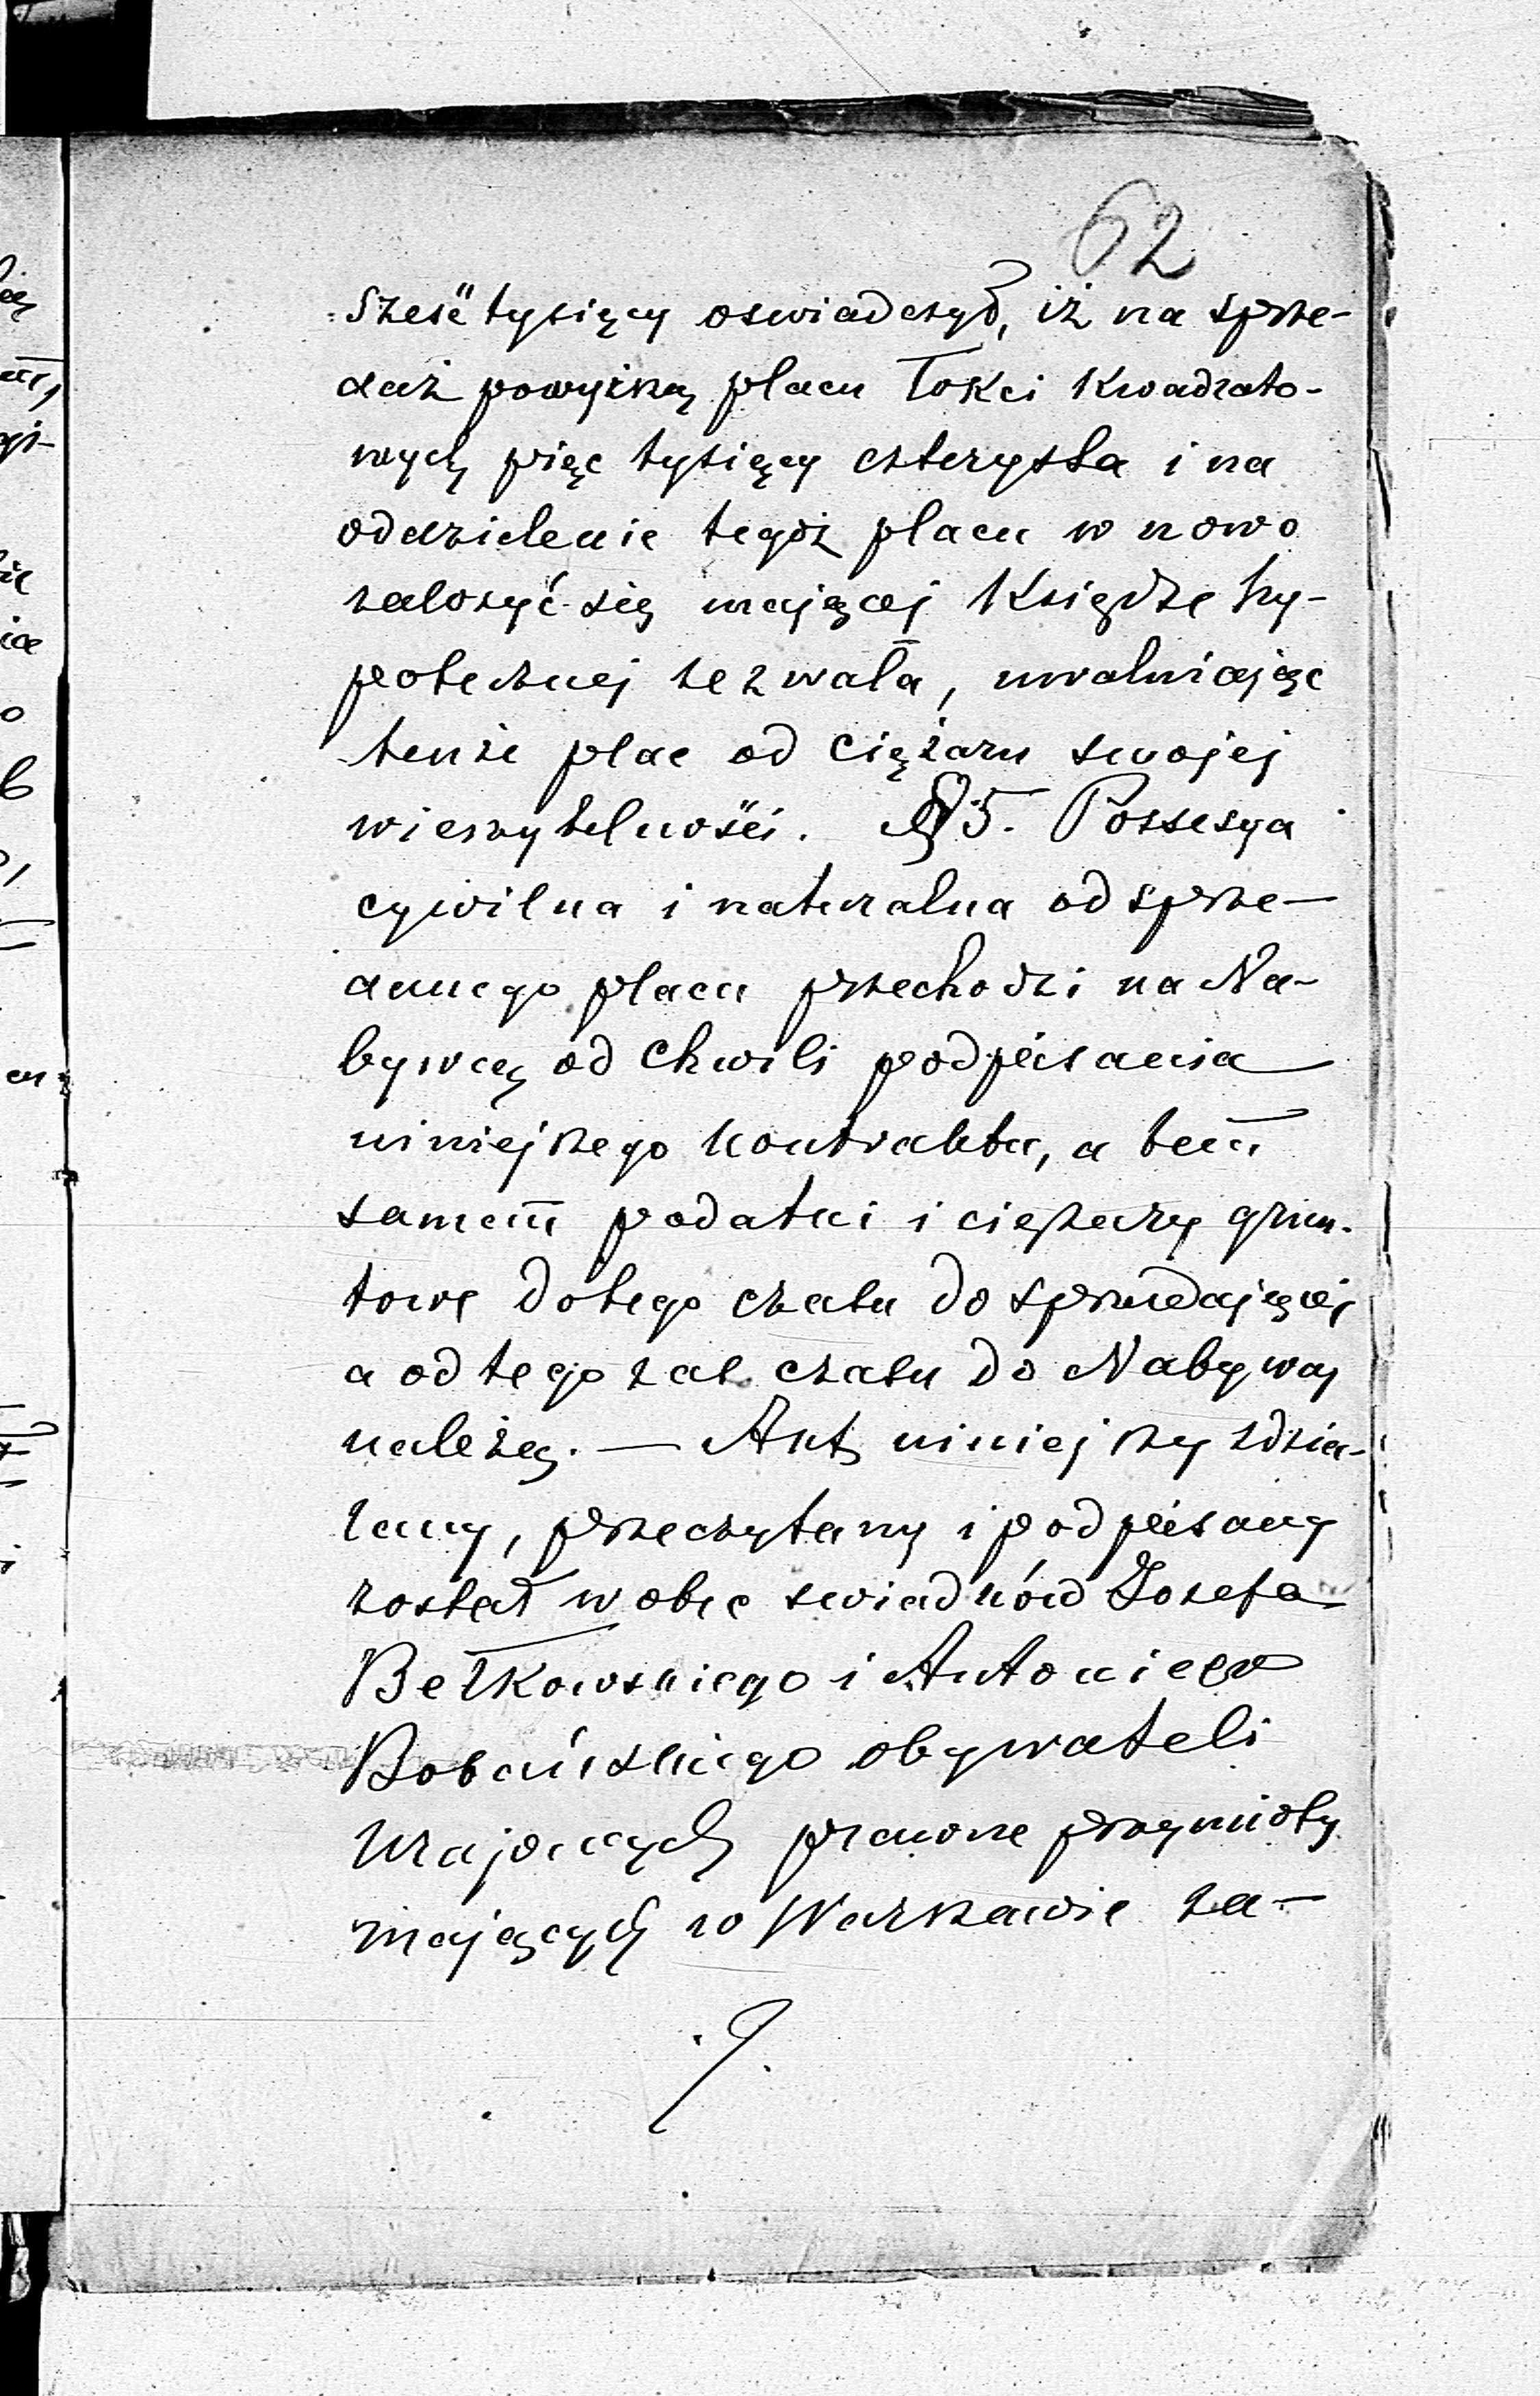 62
sześć tysięcy oswiadczył, iż na sprze-
daż powyższą placu łokci kwadrato-
wych pięc tysięcy czterysta i na
oddzielenie tegoż placu w nowo
założyć się mającej Księdze hy-
potecznej zezwala, uwalniając
tenże plac od ciężaru swojej
wierzytelności. § 5. Possesya
cywilna i naturalna od sprze-
danego placu przechodzi na Na-
bywcę od chwili podpisania
niniejszego kontraktu, a tem
samem podatki i ciężary grun-
towe dotego czasu do sprzedającej
a od tego zaś czasu do Nabywcy
należą. — Akt niniejszy zdzia-
łany, przeczytany i podpisany
został wobec swiadków Jozefa
Bełkowskiego i Antoniego
obywateli
krajowych prawne przymioty
mających w Warszawie za-